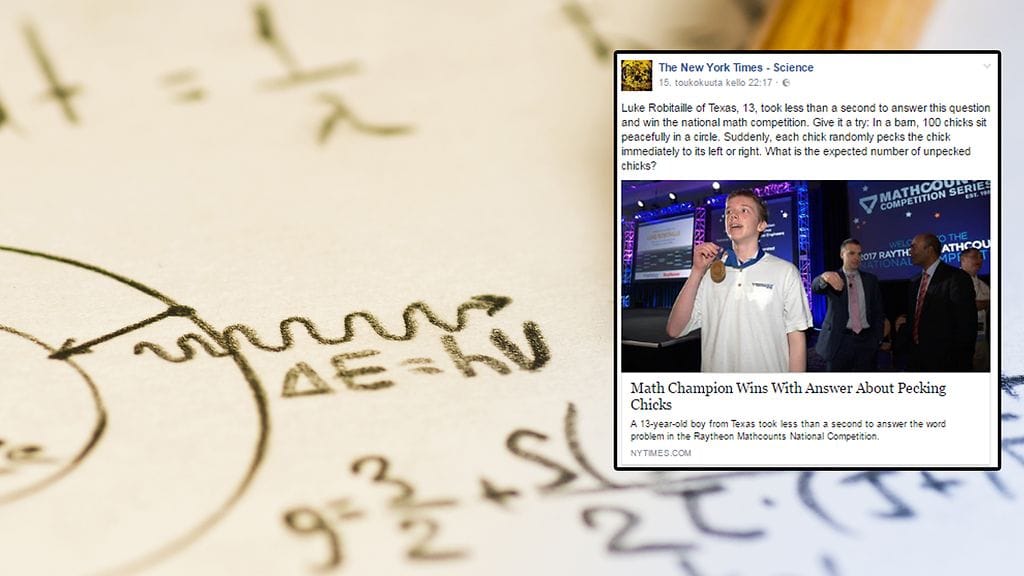 = 1/λ
The New York Times - Science
15. toukokuuta kello 22:17 ·
Luke Robitaille of Texas, 13, took less than a second to answer this question
and win the national math competition. Give it a try: In a barn, 100 chicks sit
peacefully in a circle. Suddenly, each chick randomly pecks the chick
immediately to its left or right. What is the expected number of unpecked
chicks?
MATHCOUN
COMPETITION SERIES
EST. 198
WELCOME TO THE
2017 RAYTHEON MATHCOU
NATIONAL COMPET
Math Champion Wins With Answer About Pecking
Chicks
A 13-year-old boy from Texas took less than a second to answer the word
problem in the Raytheon Mathcounts National Competition.
NYTIMES.COM
ΔE=hν
g=3/2+S(